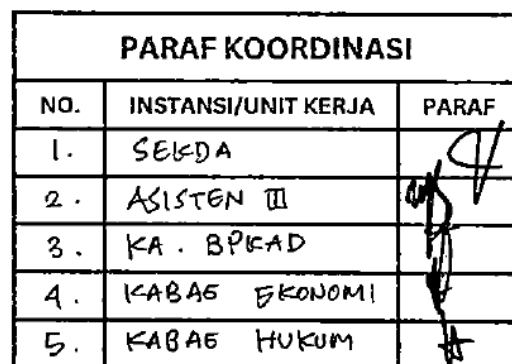 PARAF KOORDINASI
NO. INSTANSI/UNIT KERJA PARAF
1. SEKDA
2. ASISTEN III
3. KA. BPKAD
4. KABAG EKONOMI
5. KABAG HUKUM